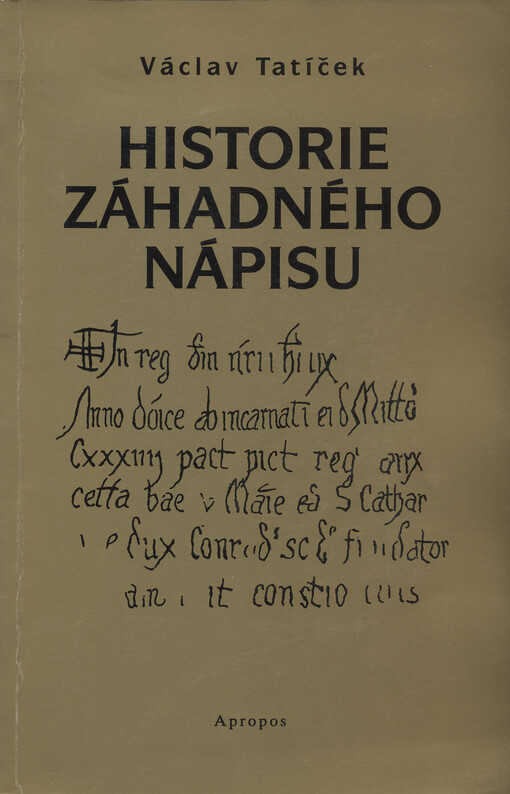 Václav Tatíček
HISTORIE
ZÁHADNÉHO
NÁPISU
In reg
Anno dóice ab incarnati ei
Cxxxiiij pact pict reg
cetta bae v Máie ed S Cathar
dux Conr sc fi dator
it constio
Apropos